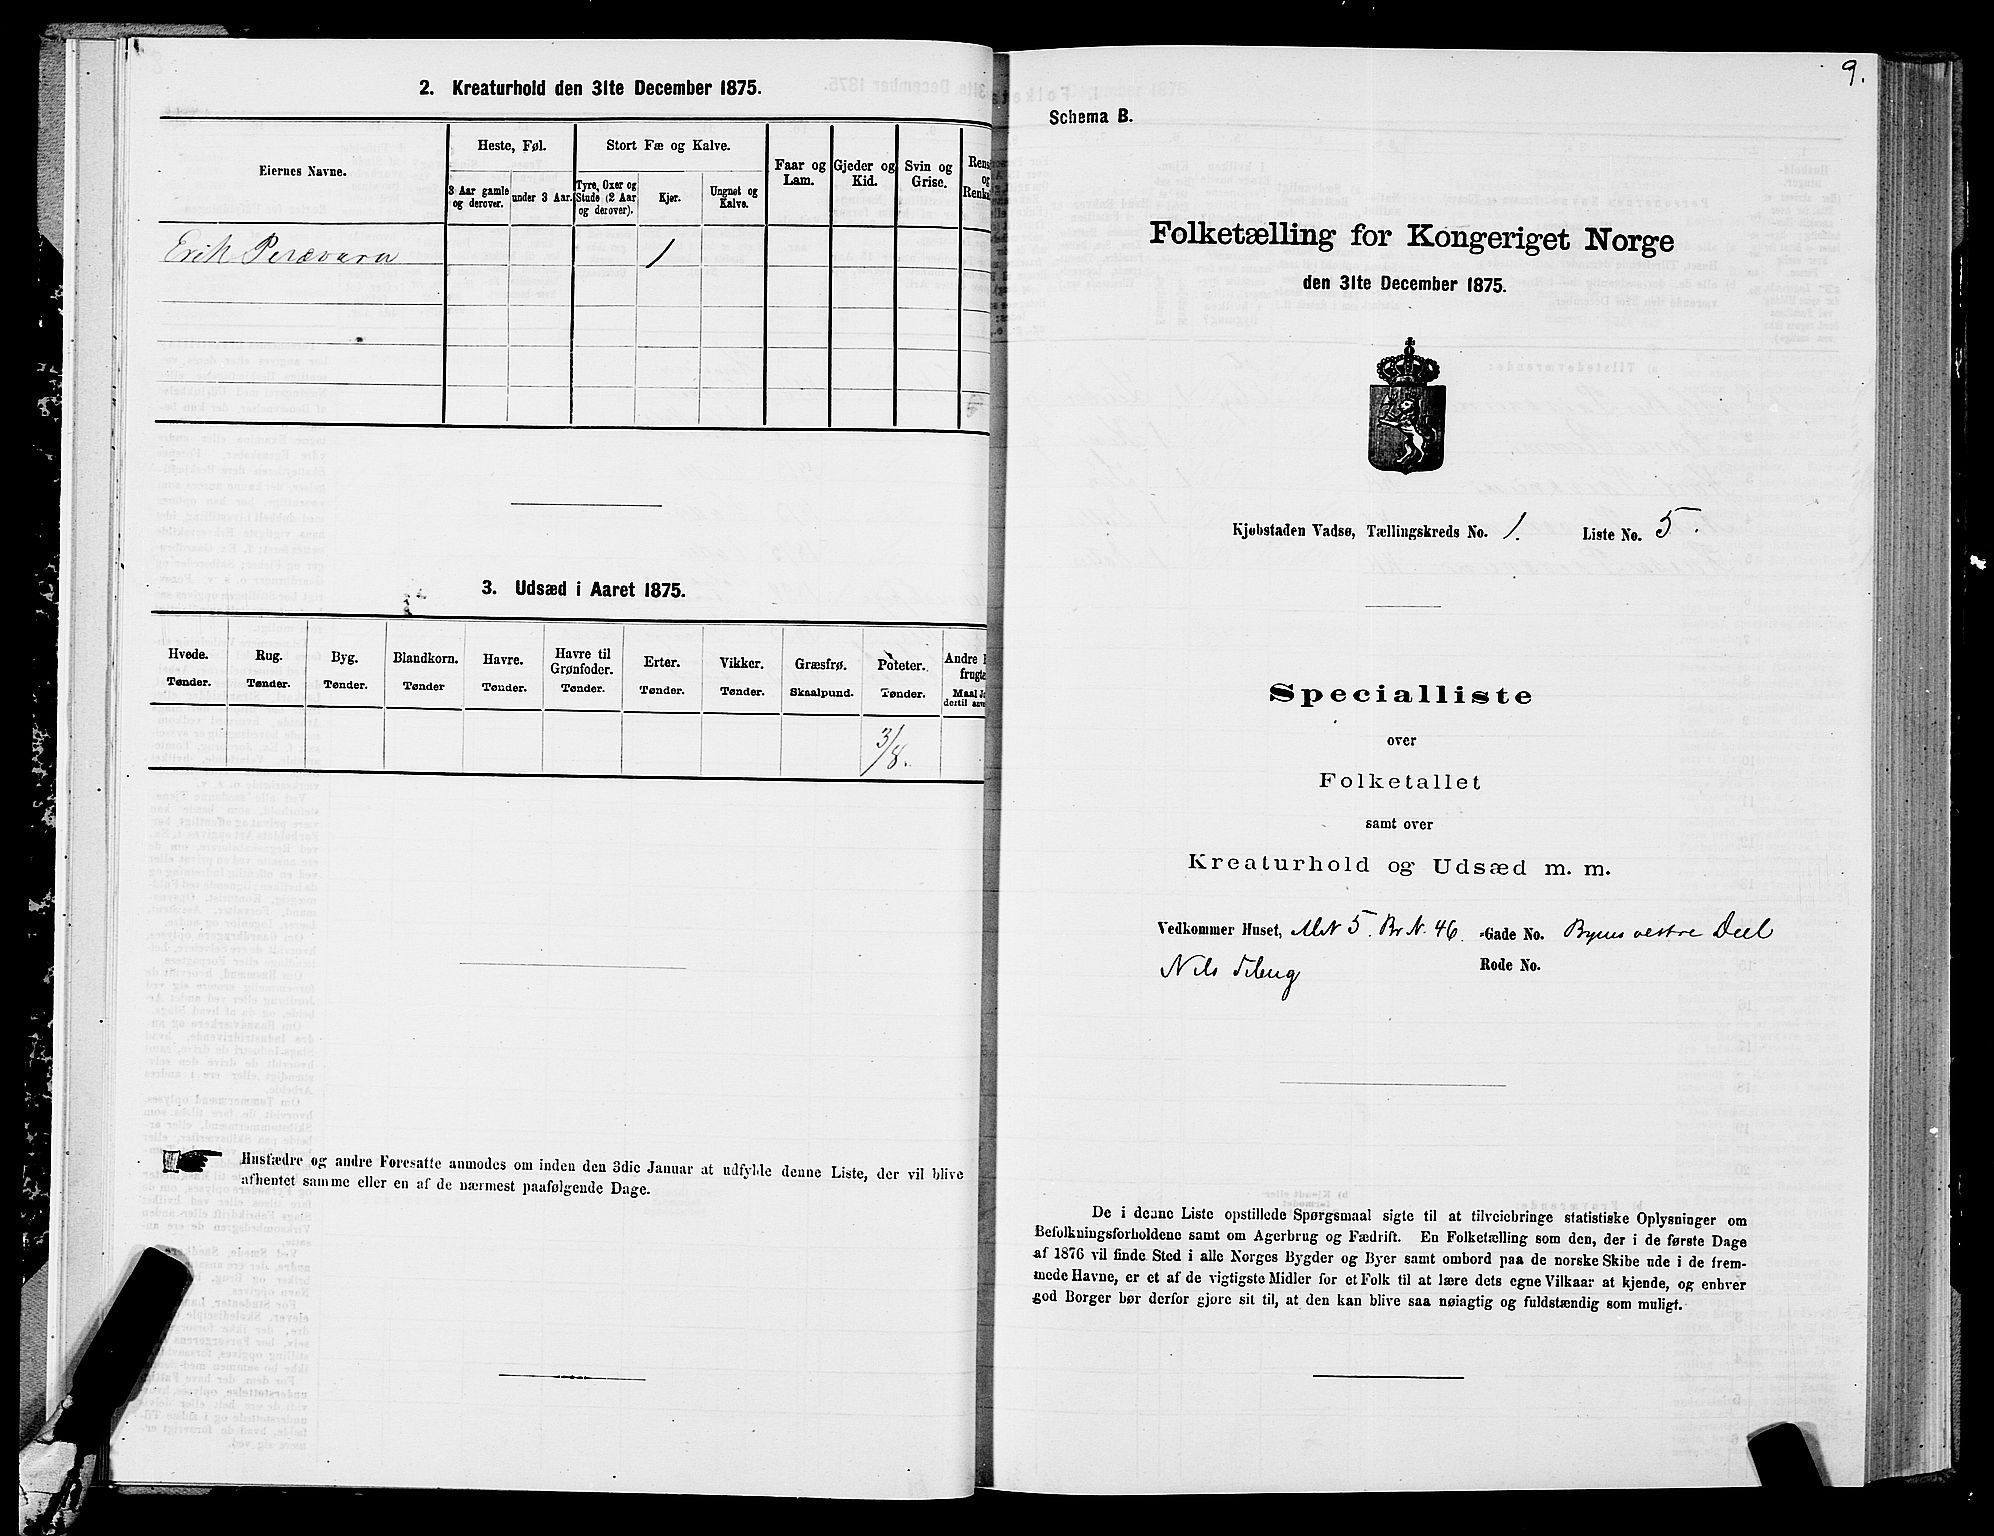 2. Kreaturhold den 31te December 1875.
Eiernes Navne.
Heste, Føl.
Stort Fæ og Kalve.
Faar og Lam.
Gjeder og Kid.
Svin og Grise.
Rens
og
Renka
3 Aar gamle og derover.
under 3 Aar.
Tyre, Oxer og Stude (2 Aar og derover).
Kjør.
Ungnøt og Kalve.
Erik Perævara 1
3. Udsæd i Aaret 1875.
Hvede. Rug. Byg. Blandkorn. Havre. Havre til Grønfoder. Erter. Vikker. Græsfrø. Poteter. Andre
frugte
Tønder. Tønder. Tønder. Tønder Tønder. Tønder. Tønder. Tønder. Skaalpund. Tønder. Maal
dertil
3/8.
Husfædre og andre Foresatte anmodes om inden den 3die Januar at udfylde denne Liste, der vil blive
afhentet samme eller en af de nærmest paafølgende Dage.
9.
Schema B.
Folketælling for Kongeriget Norge
den 31te December 1875.
Kjøbstaden Vadsø, Tællingskreds No. 1. Liste No. 5.
Specialliste
over
Folketallet
samt over
Kreaturhold og Udsæd m. m.
Vedkommer Huset, MN 5. Br N. 46. -Gade No. Byens vestre Deel
Nils Rode No.
De i denne Liste opstillede Spørgsmaal sigte til at tilveiebringe statistiske Oplysninger om
Befolkningsforholdene samt om Agerbrug og Fædrift. En Folketælling som den, der i de første Dage
af 1876 vil finde Sted i alle Norges Bygder og Byer samt ombord paa de norske Skibe ude i de frem-
mede Havne, er et af de vigtigste Midler for et Folk til at lære dets egne Vilkaar at kjende, og enhver
god Borger bør derfor gjøre sit til, at den kan blive saa nøiagtig og fuldstændig som muligt.